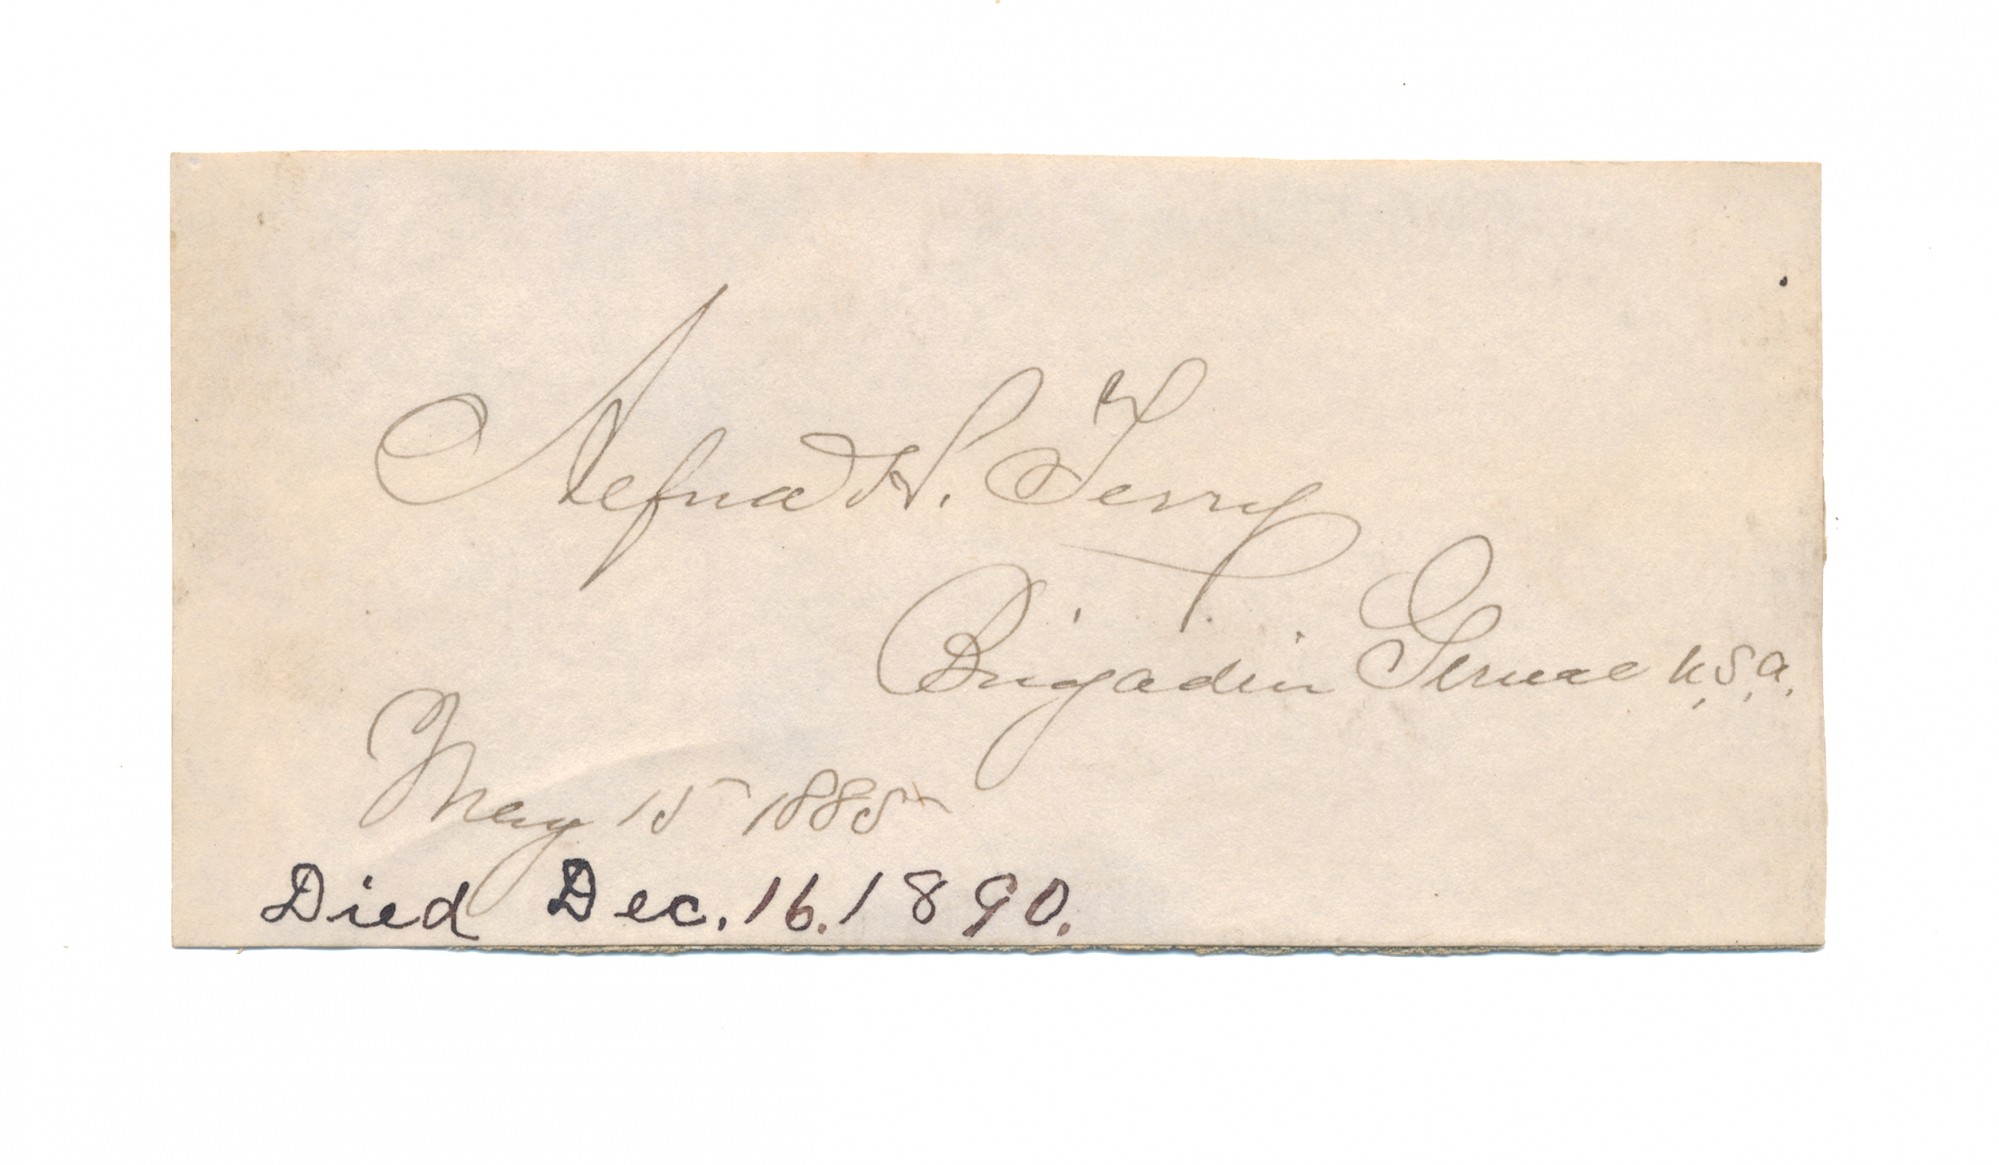 Alfred H. Terry
Brigadier General U.S.A.
May 15 1885
Died Dec. 16. 1890.